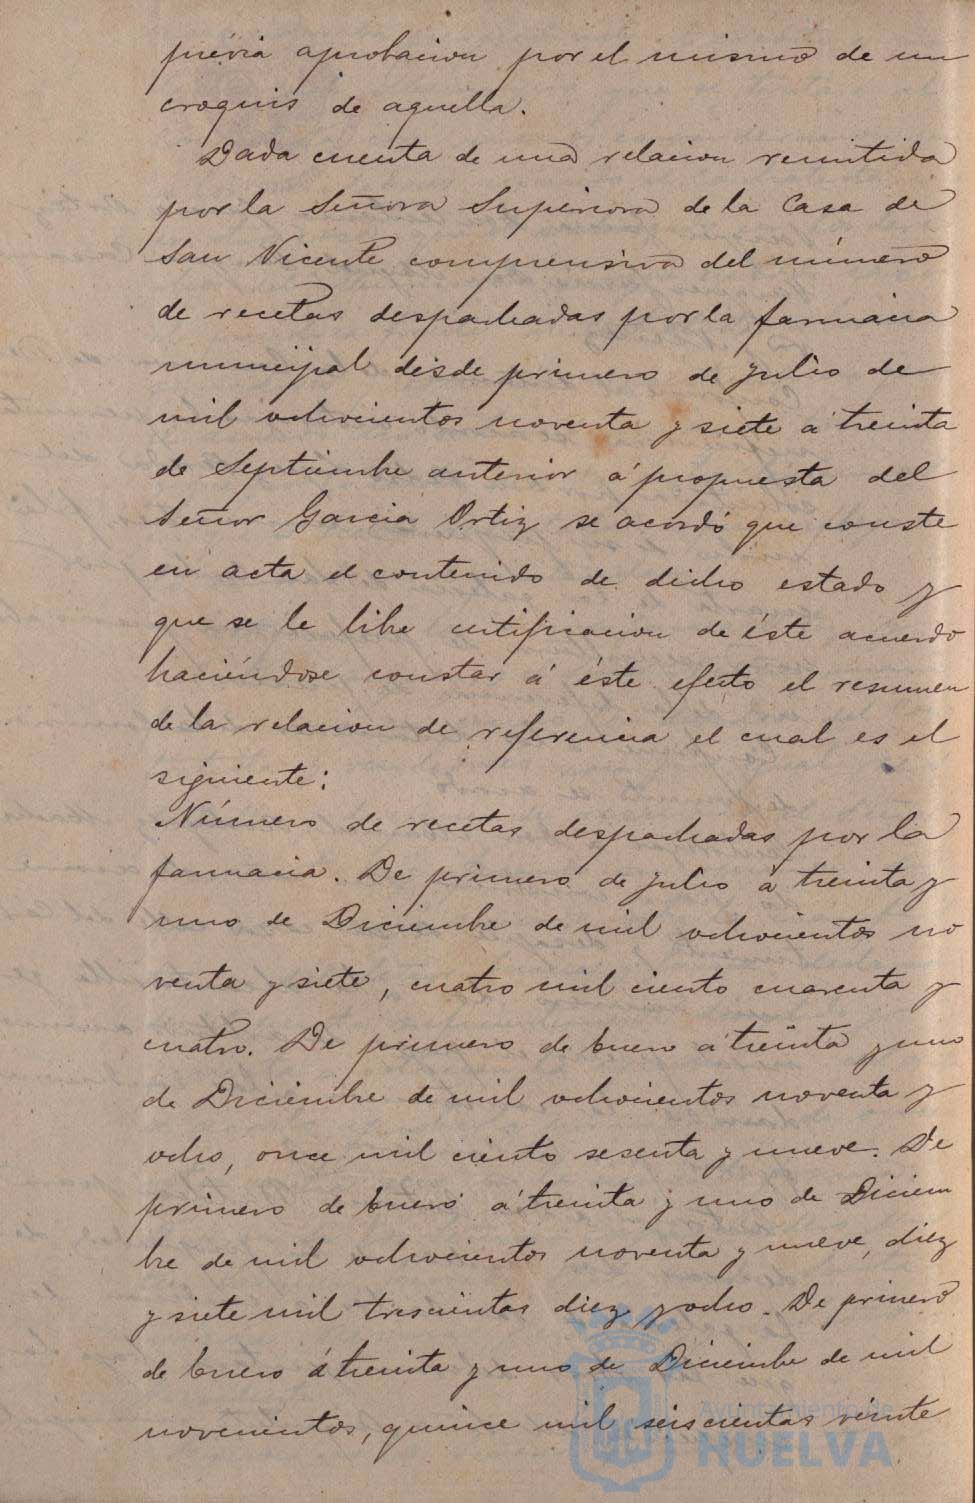 prévia aprobacion por el mismo de un
croquis de aquella.
Dada cuenta de una relacion remitida
por la Señora Superiora de la Casa de
San Vicente comprensiva del número
de recetas despachadas por la farmacia
municipal desde primero de Julio de
mil ochocientos noventa y siete á treinta
de Septiembre anterior á propuesta del
Señor Garcia Ortiz se acordó que conste
en acta el contenido de dicho estado y
que se le libre certificacion de éste acuerdo
haciéndose constar á éste efecto el resumen
de la relacion de referencia el cual es el
siguiente:
Número de recetas despachadas por la
farmacia. De primero de Julio a treinta y
uno de Diciembre de mil ochocientos no
venta y siete, cuatro mil ciento cuarenta y
cuatro. De primero de Enero á treinta y uno
de Diciembre de mil ochocientos noventa y
ocho, once mil ciento sesenta y nueve. De
primero de Enero á treinta y uno de Diciem
bre de mil ochocientos noventa y nueve, diez
y siete mil trescientas diez y ocho. De primero
de Enero á treinta y uno de Diciembre de mil
novecientos, quince mil seiscientas veinte
Ayuntamiento de
HUELVA